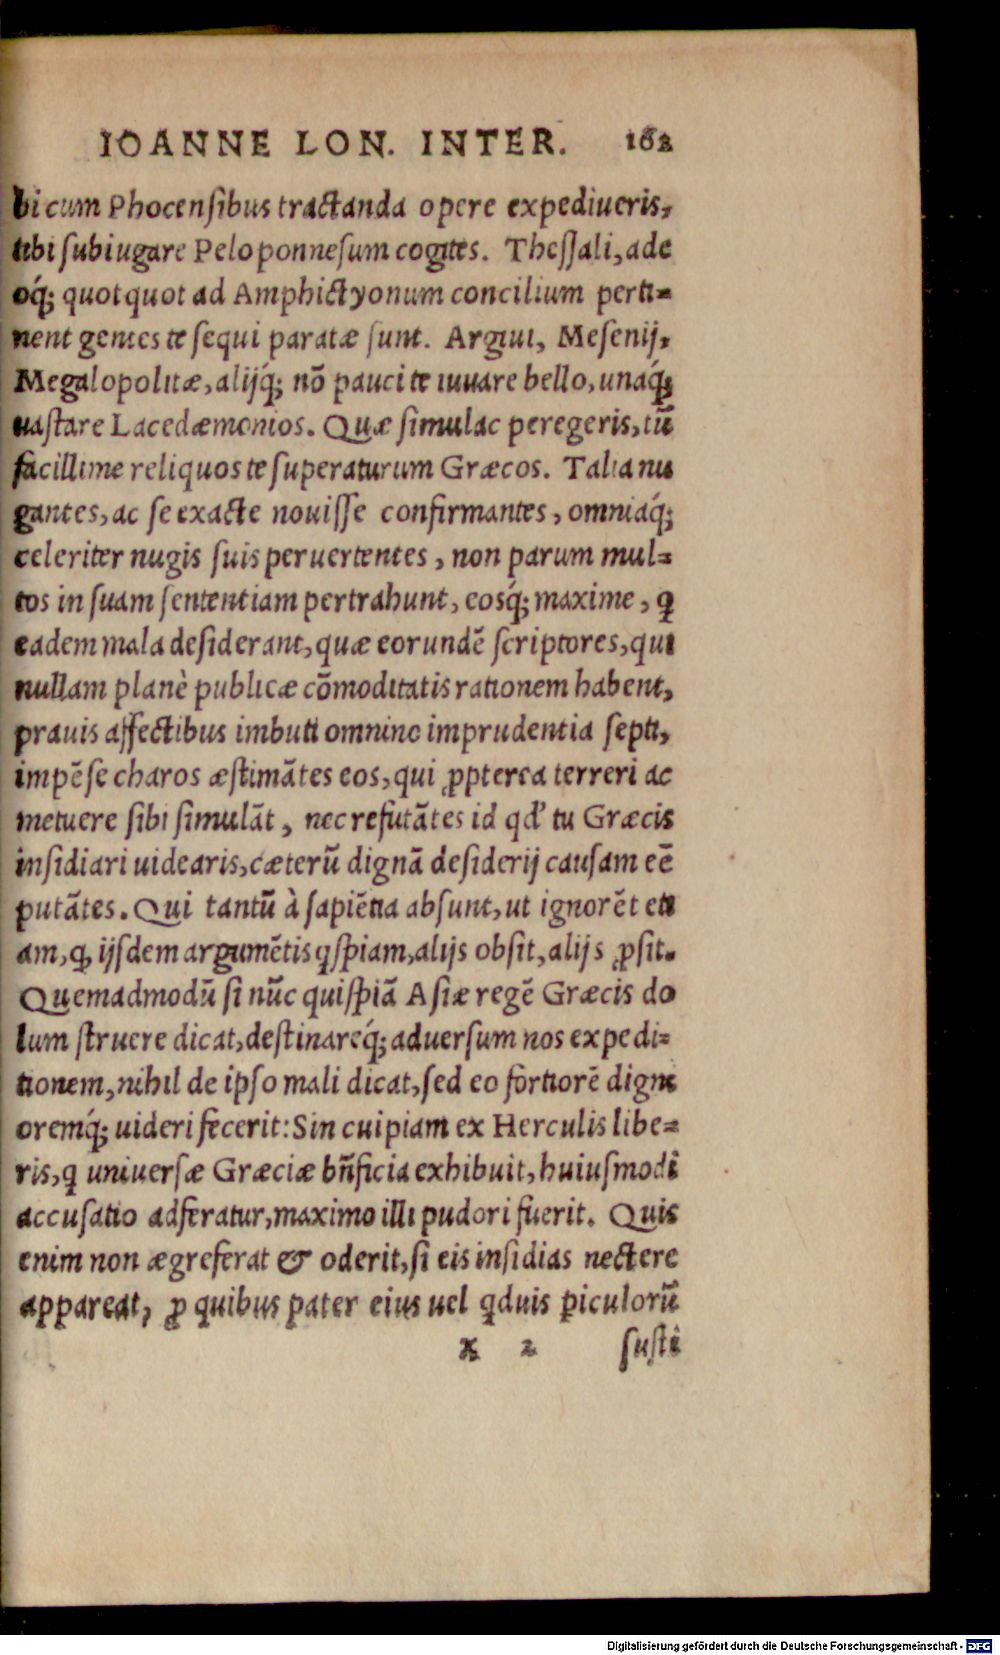 IOANNE LON. INTER. 162
bi cum Phocensibus tractanda opere expediueris,
tibi subiugare Peloponnesum cogites. Thessali, ade
oq́; quotquot ad Amphictyonum concilium perti=
nent gentes te sequi paratæ sunt. Argiui, Mesenij,
Megalopolitæ, alijq́; nõ pauci te iuuare bello, unaq́;
uastare Lacedæmonios. Quæ simulac peregeris, tũ
facillime reliquos te superaturum Græcos. Talia nu
gantes, ac se exacte nouisse confirmantes, omniaq́;
celeriter nugis suis peruertentes, non parum mul=
tos in suam sententiam pertrahunt, eosq́; maxime, q
eadem mala desiderant, quæ eorundẽ scriptores, qui
nullam planè publicæ cõmoditatis rationem habent,
prauis affectibus imbuti omnino imprudentia septi,
impẽse charos æstimãtes eos, qui ꝓpterea terreri ac
metuere sibi simulãt, nec refutãtes id qd' tu Græcis
insidiari uidearis, cæterũ dignã desiderij causam eẽ
putãtes. Qui tantũ à sapiẽtia absunt, ut ignorẽt eti
am, ꝙ ijsdem argumẽtis qspiam, alijs obsit, alijs ꝓsit.
Quemadmodũ si nũc quispiã Asiæ regẽ Græcis do
lum struere dicat, destinareq́; aduersum nos expedi=
tionem, nihil de ipso mali dicat, sed eo fortiorẽ digni
oremq́; uideri fecerit: Sin cuipiam ex Herculis libe=
ris, q uniuersæ Græciæ bñficia exhibuit, huiusmodi
accusatio adferatur, maximo illi pudori fuerit. Quis
enim non ægre ferat & oderit, si eis insidias nectere
appareat, ꝓ quibus pater eius uel qduis ꝑiculorũ
x 2 susti
Digitalisierung gefördert durch die Deutsche Forschungsgemeinschaft - DFG